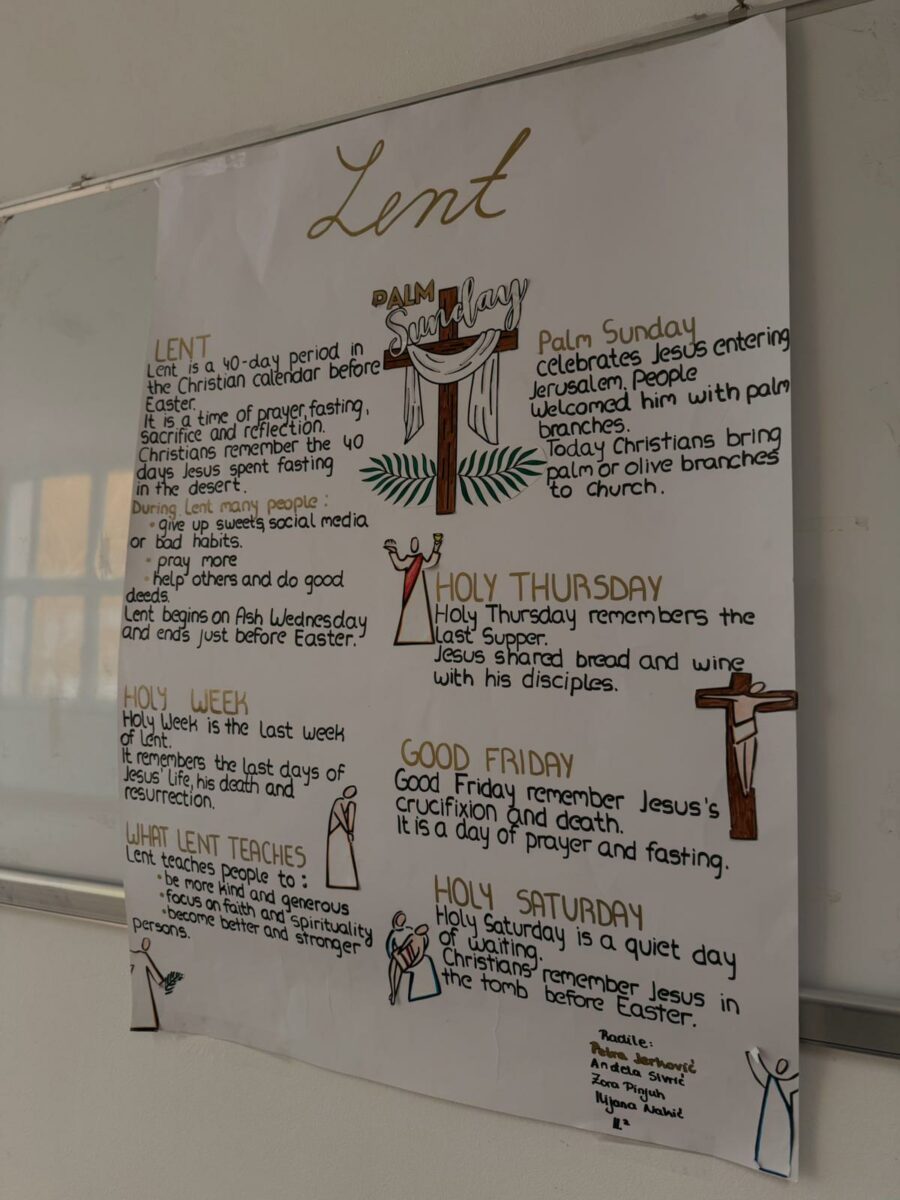 Lent
PALM
Sunday
LENT
Lent is a 40-day period in
the Christian calendar before
Easter.
It is a time of prayer, fasting,
sacrifice and reflection.
Christians remember the 40
days Jesus spent fasting
in the desert.
During Lent many people:
• give up sweets, social media
or bad habits.
• pray more
• help others and do good
deeds.
Lent begins on Ash Wednesday
and ends just before Easter.
HOLY WEEK
Holy Week is the last week
of Lent.
It remembers the last days of
Jesus' life, his death and
resurrection.
WHAT LENT TEACHES
Lent teaches people to:
• be more kind and generous
• focus on faith and spirituality
• become better and stronger
persons.
Palm Sunday
celebrates Jesus entering
Jerusalem. People
welcomed him with palm
branches.
Today Christians bring
palm or olive branches
to church.
HOLY THURSDAY
Holy Thursday remembers the
Last Supper.
Jesus shared bread and wine
with his disciples.
GOOD FRIDAY
Good Friday remember Jesus's
crucifixion and death.
It is a day of prayer and fasting.
HOLY SATURDAY
Holy Saturday is a quiet day
of waiting.
Christians remember Jesus in
the tomb before Easter.
Radile:
Petra Jerković
Anđela Sivrić
Zora Pinjuh
Ilijana
II.²